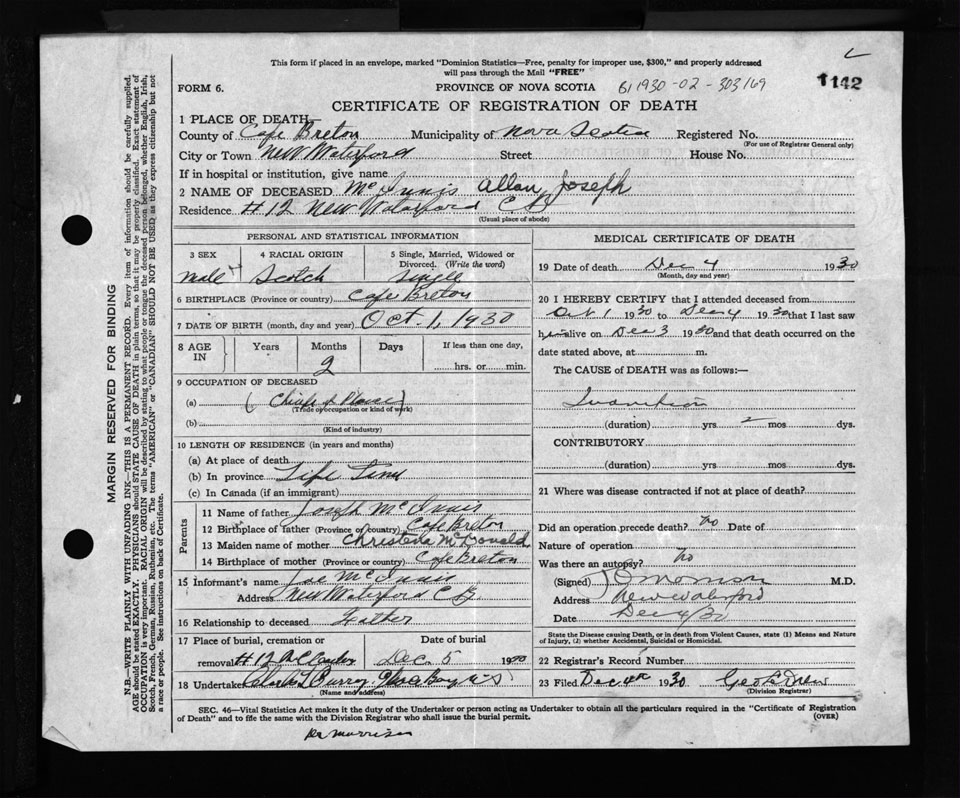 This form if placed in an envelope, marked "Dominion Statistics—Free, penalty for improper use, $300," and properly addressed
will pass through the Mail "FREE"
1142
FORM 6.
PROVINCE OF NOVA SCOTIA
61930-02-303169
CERTIFICATE OF REGISTRATION OF DEATH
1 PLACE OF DEATH—
County of Cape Breton Municipality of Nova Scotia Registered No.
(For use of Registrar General only)
City or Town New Waterford Street House No.
If in hospital or institution, give name
2 NAME OF DECEASED McInnis Allan Joseph
Residence #12 New Waterford C B
(Usual place of abode)
PERSONAL AND STATISTICAL INFORMATION
3 SEX
4 RACIAL ORIGIN
5 Single, Married, Widowed or
Divorced. (Write the word)
male Scotch Single
6 BIRTHPLACE (Province or country) Cape Breton
7 DATE OF BIRTH (month, day and year) Oct. 1, 1930
8 AGE IN
Years Months Days
If less than one day,
2
hrs. or min.
9 OCCUPATION OF DECEASED
(a)
(Trade or occupation or kind of work)
(b)
(Kind of industry)
10 LENGTH OF RESIDENCE (in years and months)
(a) At place of death
(b) In province Life Time
(c) In Canada (if an immigrant)
Parents
11 Name of father Joseph McInnis
12 Birthplace of father (Province or country) Cape Breton
13 Maiden name of mother Christena McDonald
14 Birthplace of mother (Province or country) Cape Breton
15 Informant's name Joe McInnis
Address New Waterford C B.
16 Relationship to deceased Father
17 Place of burial, cremation or
Date of burial
removal #12 Dec. 5 1930
18 Undertaker Glace Bay N S
(Name and address)
MEDICAL CERTIFICATE OF DEATH
19 Date of death Dec 4 1930
(Month, day and year)
20 I HEREBY CERTIFY that I attended deceased from
Oct 1 1930 to Dec 4 1930 that I last saw
him alive on Dec 3 1930 and that death occurred on the
date stated above, at m.
The CAUSE of DEATH was as follows:—
Inanition
(duration) yrs 2 mos dys.
CONTRIBUTORY
(duration) yrs mos dys.
21 Where was disease contracted if not at place of death?
Did an operation precede death? no Date of
Nature of operation
Was there an autopsy? no
(Signed) Morrison M.D.
Address New Waterford
Date Dec 4/30
State the Disease causing Death, or in death from Violent Causes, state (1) Means and Nature
of Injury, (2) whether Accidental, Suicidal or Homicidal.
22 Registrar's Record Number
23 Filed Dec 4th 1930 Geo
(Division Registrar)
SEC. 46—Vital Statistics Act makes it the duty of the Undertaker or person acting as Undertaker to obtain all the particulars required in the "Certificate of Registration
of Death" and to file the same with the Division Registrar who shall issue the burial permit.
(OVER)
Dr Morrison
MARGIN RESERVED FOR BINDING
N.B.—WRITE PLAINLY WITH UNFADING INK—THIS IS A PERMANENT RECORD. Every item of information should be carefully supplied.
AGE should be stated EXACTLY. PHYSICIANS should STATE CAUSE OF DEATH in plain terms, so that it may be properly classified. Exact statement of
OCCUPATION is very important. RACIAL ORIGIN will be described by stating to what people or tongue the deceased person belonged, whether English, Irish,
Scotch, French, German, Russian, Ruthenian, etc. The terms "AMERICAN" or "CANADIAN" SHOULD NOT BE USED as they express citizenship but not
a race or people. See instructions on back of Certificate.